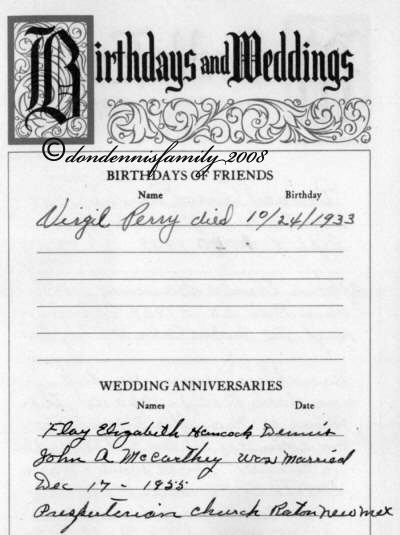 Birthdays and Weddings
©dondennisfamily 2008
BIRTHDAYS OF FRIENDS
Name Birthday
Virgil Perry died 10/24/1933
WEDDING ANNIVERSARIES
Names Date
Flay Elizabeth Hancock Dennis
John A McCarthey was married
Dec 17 - 1955
Presputerian Church Raton new mex